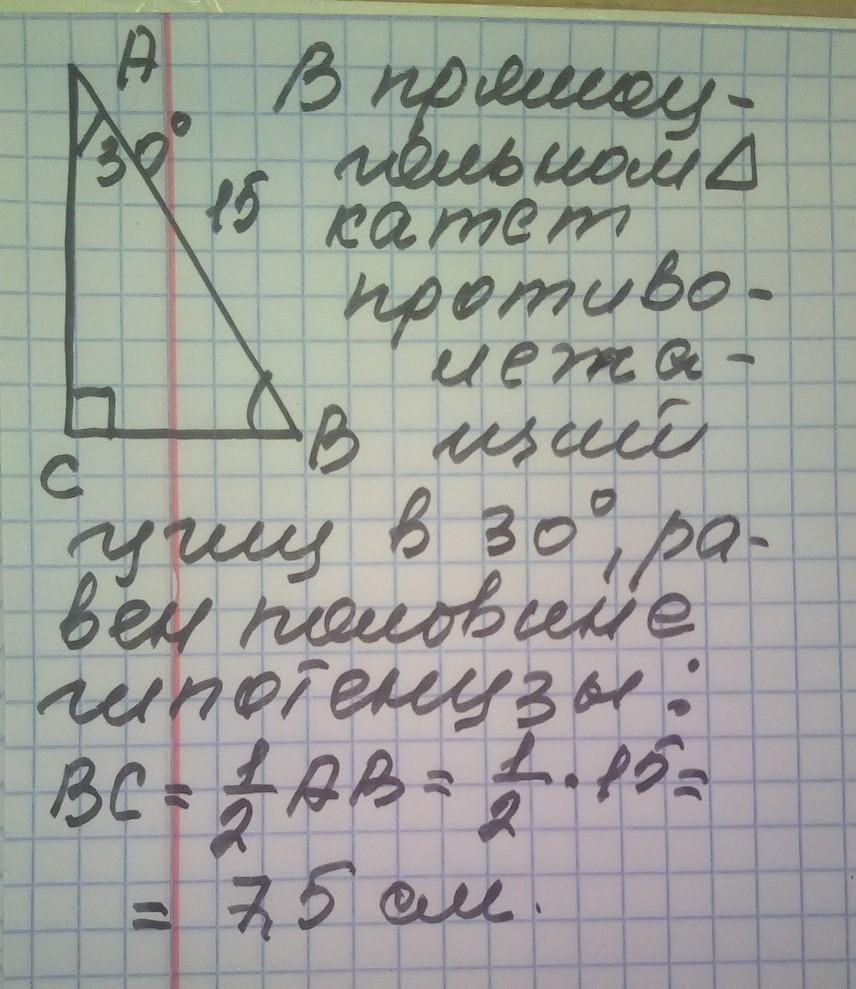 A
30°
15
C
B
В прямоу-
гольном Δ
катет
противо-
лежа-
щий
углу в 30°, ра-
вен половине
гипотенузы:
BC = 1/2 AB = 1/2 · 15 =
= 7,5 см.